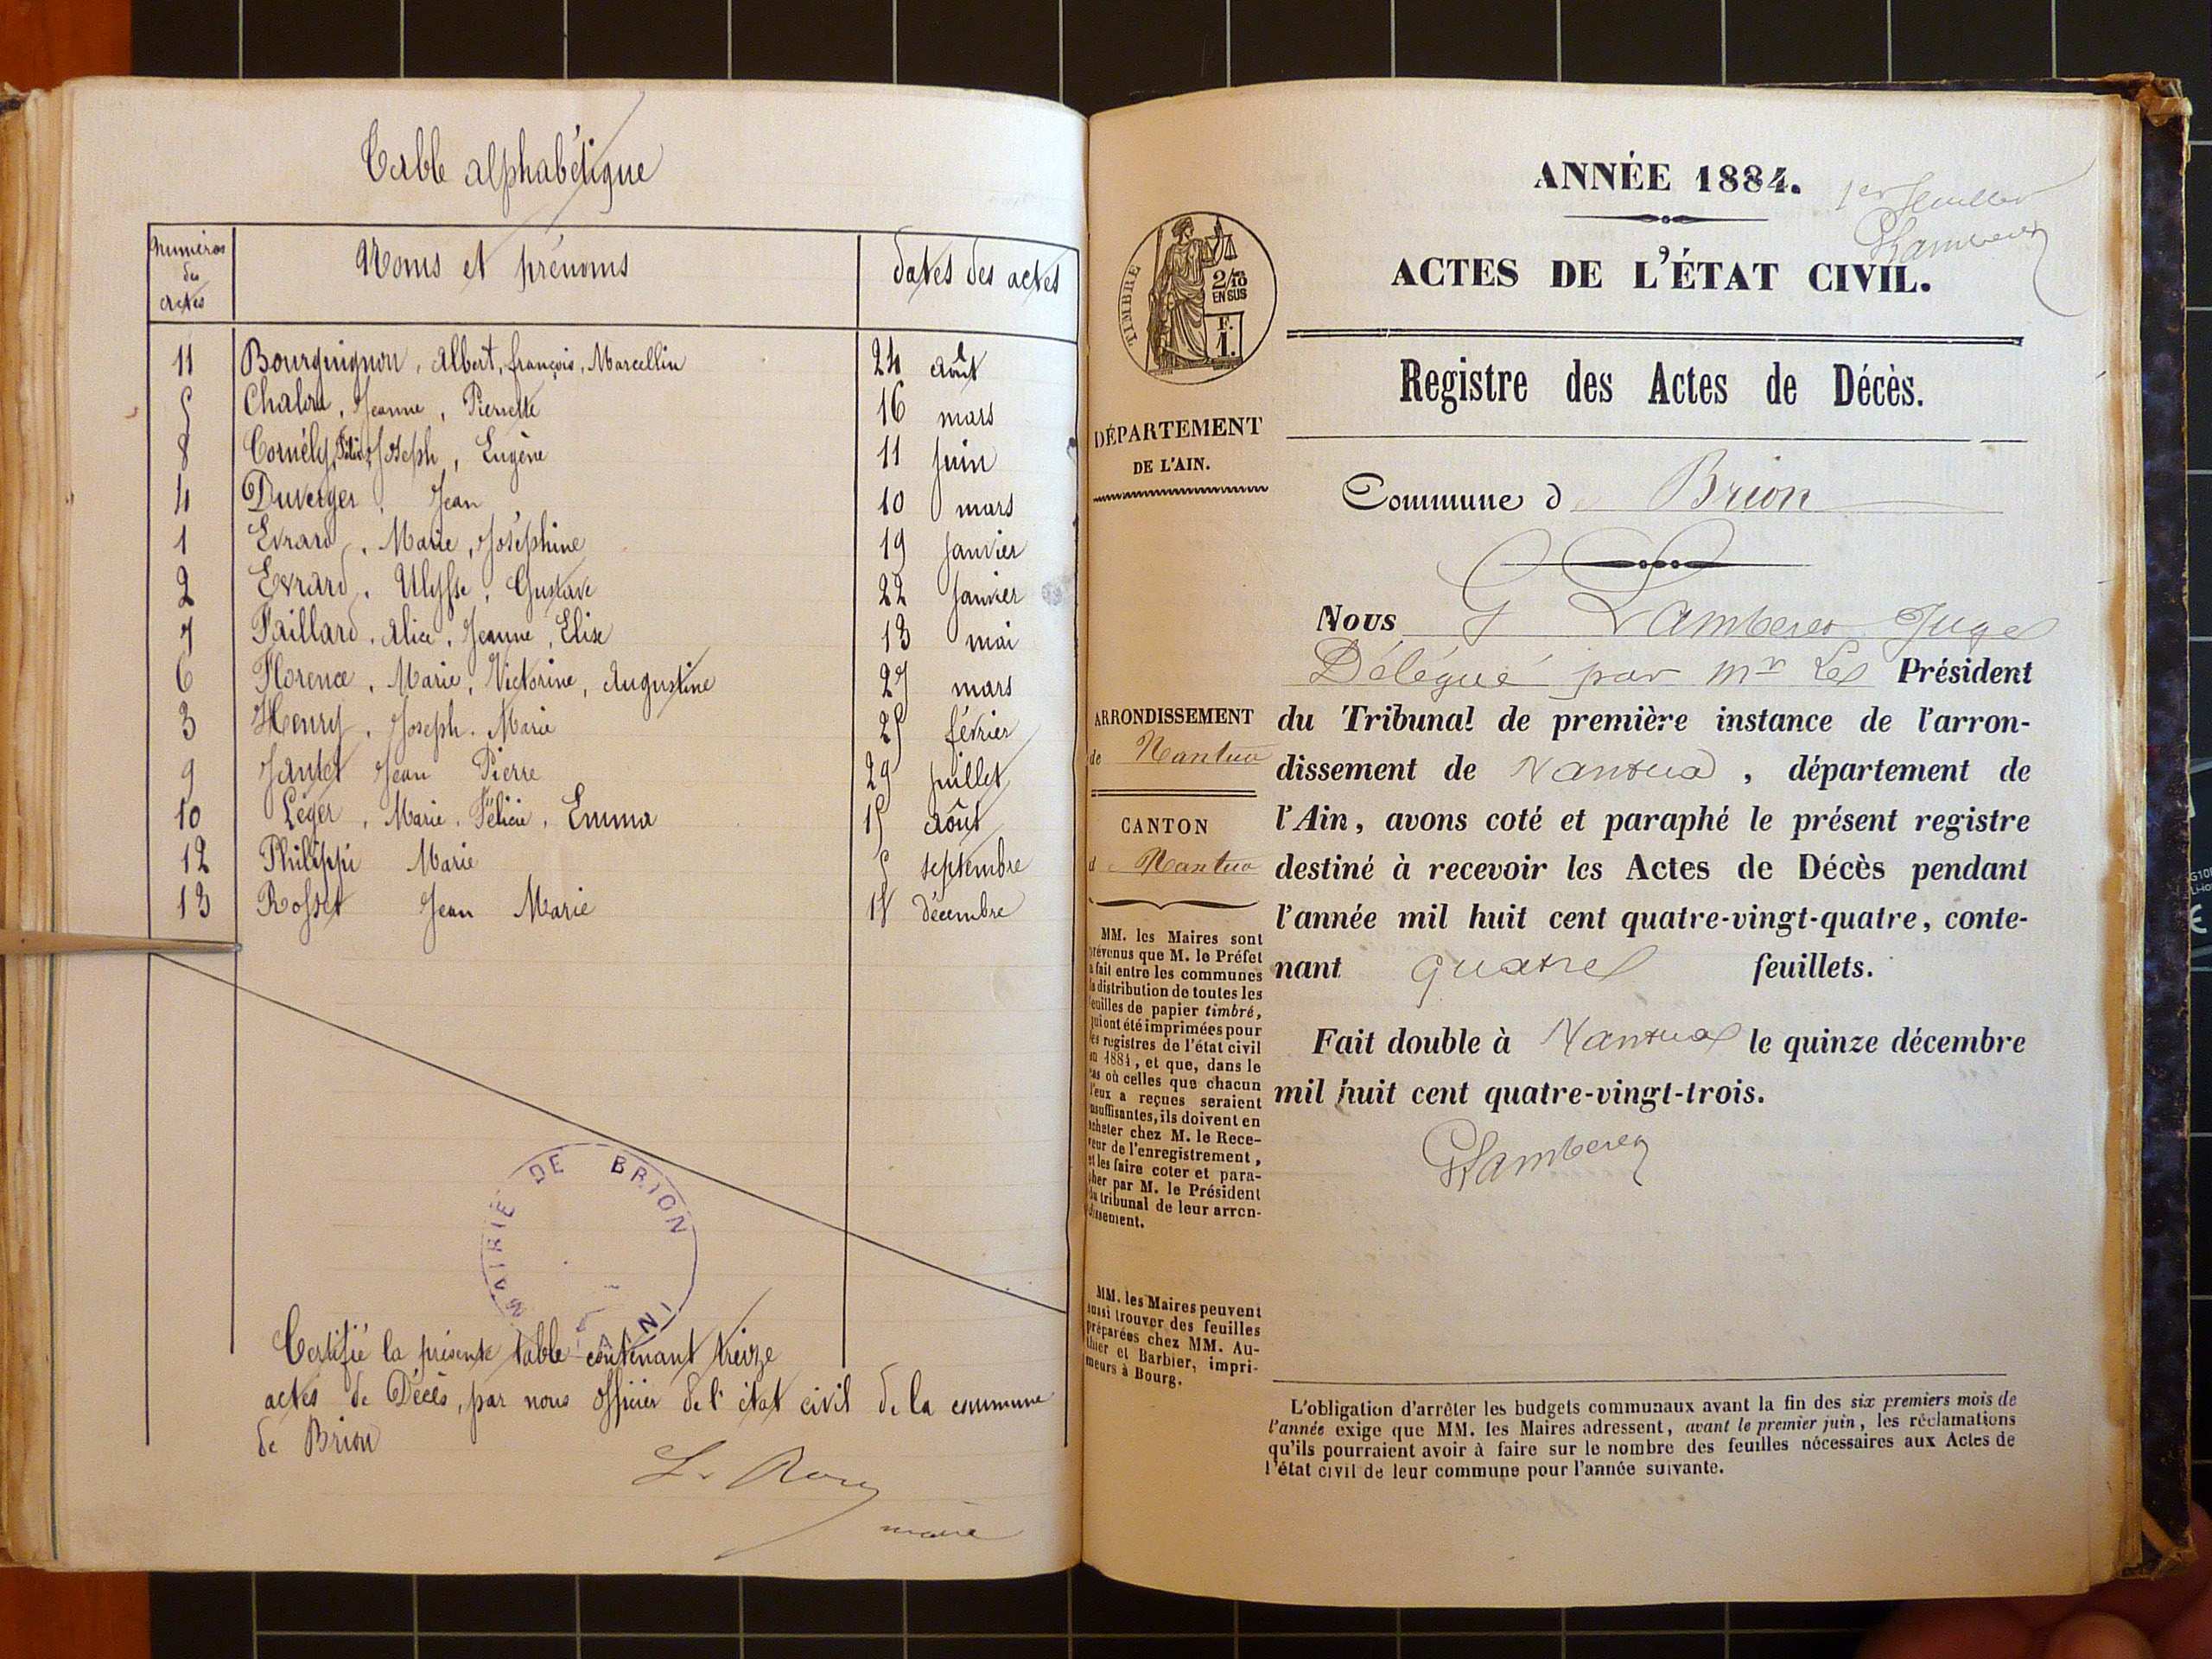 Table alphabétique
Numéros des actes
Noms et prénoms
dates des actes
11 Bourguignon, Albert, françois, Marcellin 24 Août
5 Chalon, Jeanne, Pierrette 16 mars
8 Cornély, Félix, Joseph, Eugène 11 juin
4 Duverger, Jean 10 mars
1 Evrard, Marie, Joséphine 19 janvier
2 Evrard, Ulysse, Gustave 22 janvier
7 Faillard, Alice, Jeanne, Elise 13 mai
6 Florence, Marie, Victorine, Augustine 27 mars
3 Henry, Joseph, Marie 25 février
9 Jantet Jean Pierre 29 juillet
10 Léger, Marie, Félicie, Emma 15 Août
12 Philippi Marie 5 septembre
13 Rosset Jean Marie 15 décembre
MAIRIE DE BRION
AIN
Certifié la présente table contenant treize
actes de Décès, par nous officier de l'état civil de la commune
de Brion
maire
ANNÉE 1884.
1er feuillet
ACTES DE L'ÉTAT CIVIL.
TIMBRE
2/10
EN SUS
F.
1.
Registre des Actes de Décès.
DÉPARTEMENT
DE L'AIN.
Commune de Brion
Nous G Lamberet Juge
Délégué par Mr Le Président
du Tribunal de première instance de l'arron-
dissement de Nantua, département de
l'Ain, avons coté et paraphé le présent registre
destiné à recevoir les Actes de Décès pendant
l'année mil huit cent quatre-vingt-quatre, conte-
nant quatre feuillets.
Fait double à Nantua le quinze décembre
mil huit cent quatre-vingt-trois.
GLamberet
ARRONDISSEMENT
de Nantua
CANTON
de Nantua
MM. les Maires sont
prévenus que M. le Préfet
a fait entre les communes
la distribution de toutes les
feuilles de papier timbré,
qui ont été imprimées pour
les registres de l'état civil
en 1884, et que, dans le
cas où celles que chacun
d'eux a reçues seraient
insuffisantes, ils doivent en
acheter chez M. le Rece-
veur de l'enregistrement,
et les faire coter et para-
pher par M. le Président
du tribunal de leur arron-
dissement.
MM. les Maires peuvent
aussi trouver des feuilles
préparées chez MM. Au-
thier et Barbier, impri-
meurs à Bourg.
L'obligation d'arrêter les budgets communaux avant la fin des six premiers mois de
l'année exige que MM. les Maires adressent, avant le premier juin, les réclamations
qu'ils pourraient avoir à faire sur le nombre des feuilles nécessaires aux Actes de
l'état civil de leur commune pour l'année suivante.